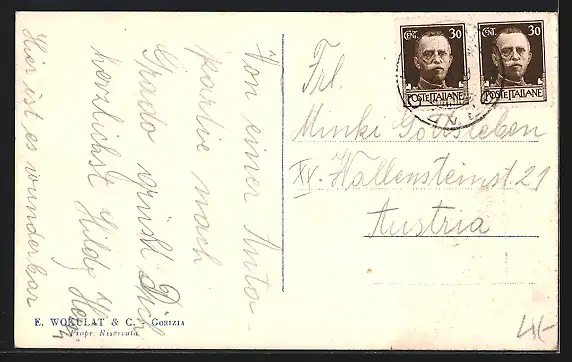 Von einer Auto-
partie nach
Grado grüßt Dich
herzlichst Hildy u. Hansi
Hier ist es wunderbar
E. WOKULAT & C. - GORIZIA
Propr. Riservata
CENT. 30
POSTE ITALIANE
CENT. 30
POSTE ITALIANE
Frl.
Minki Gottsleben
XX. Wallensteinst. 21
Austria